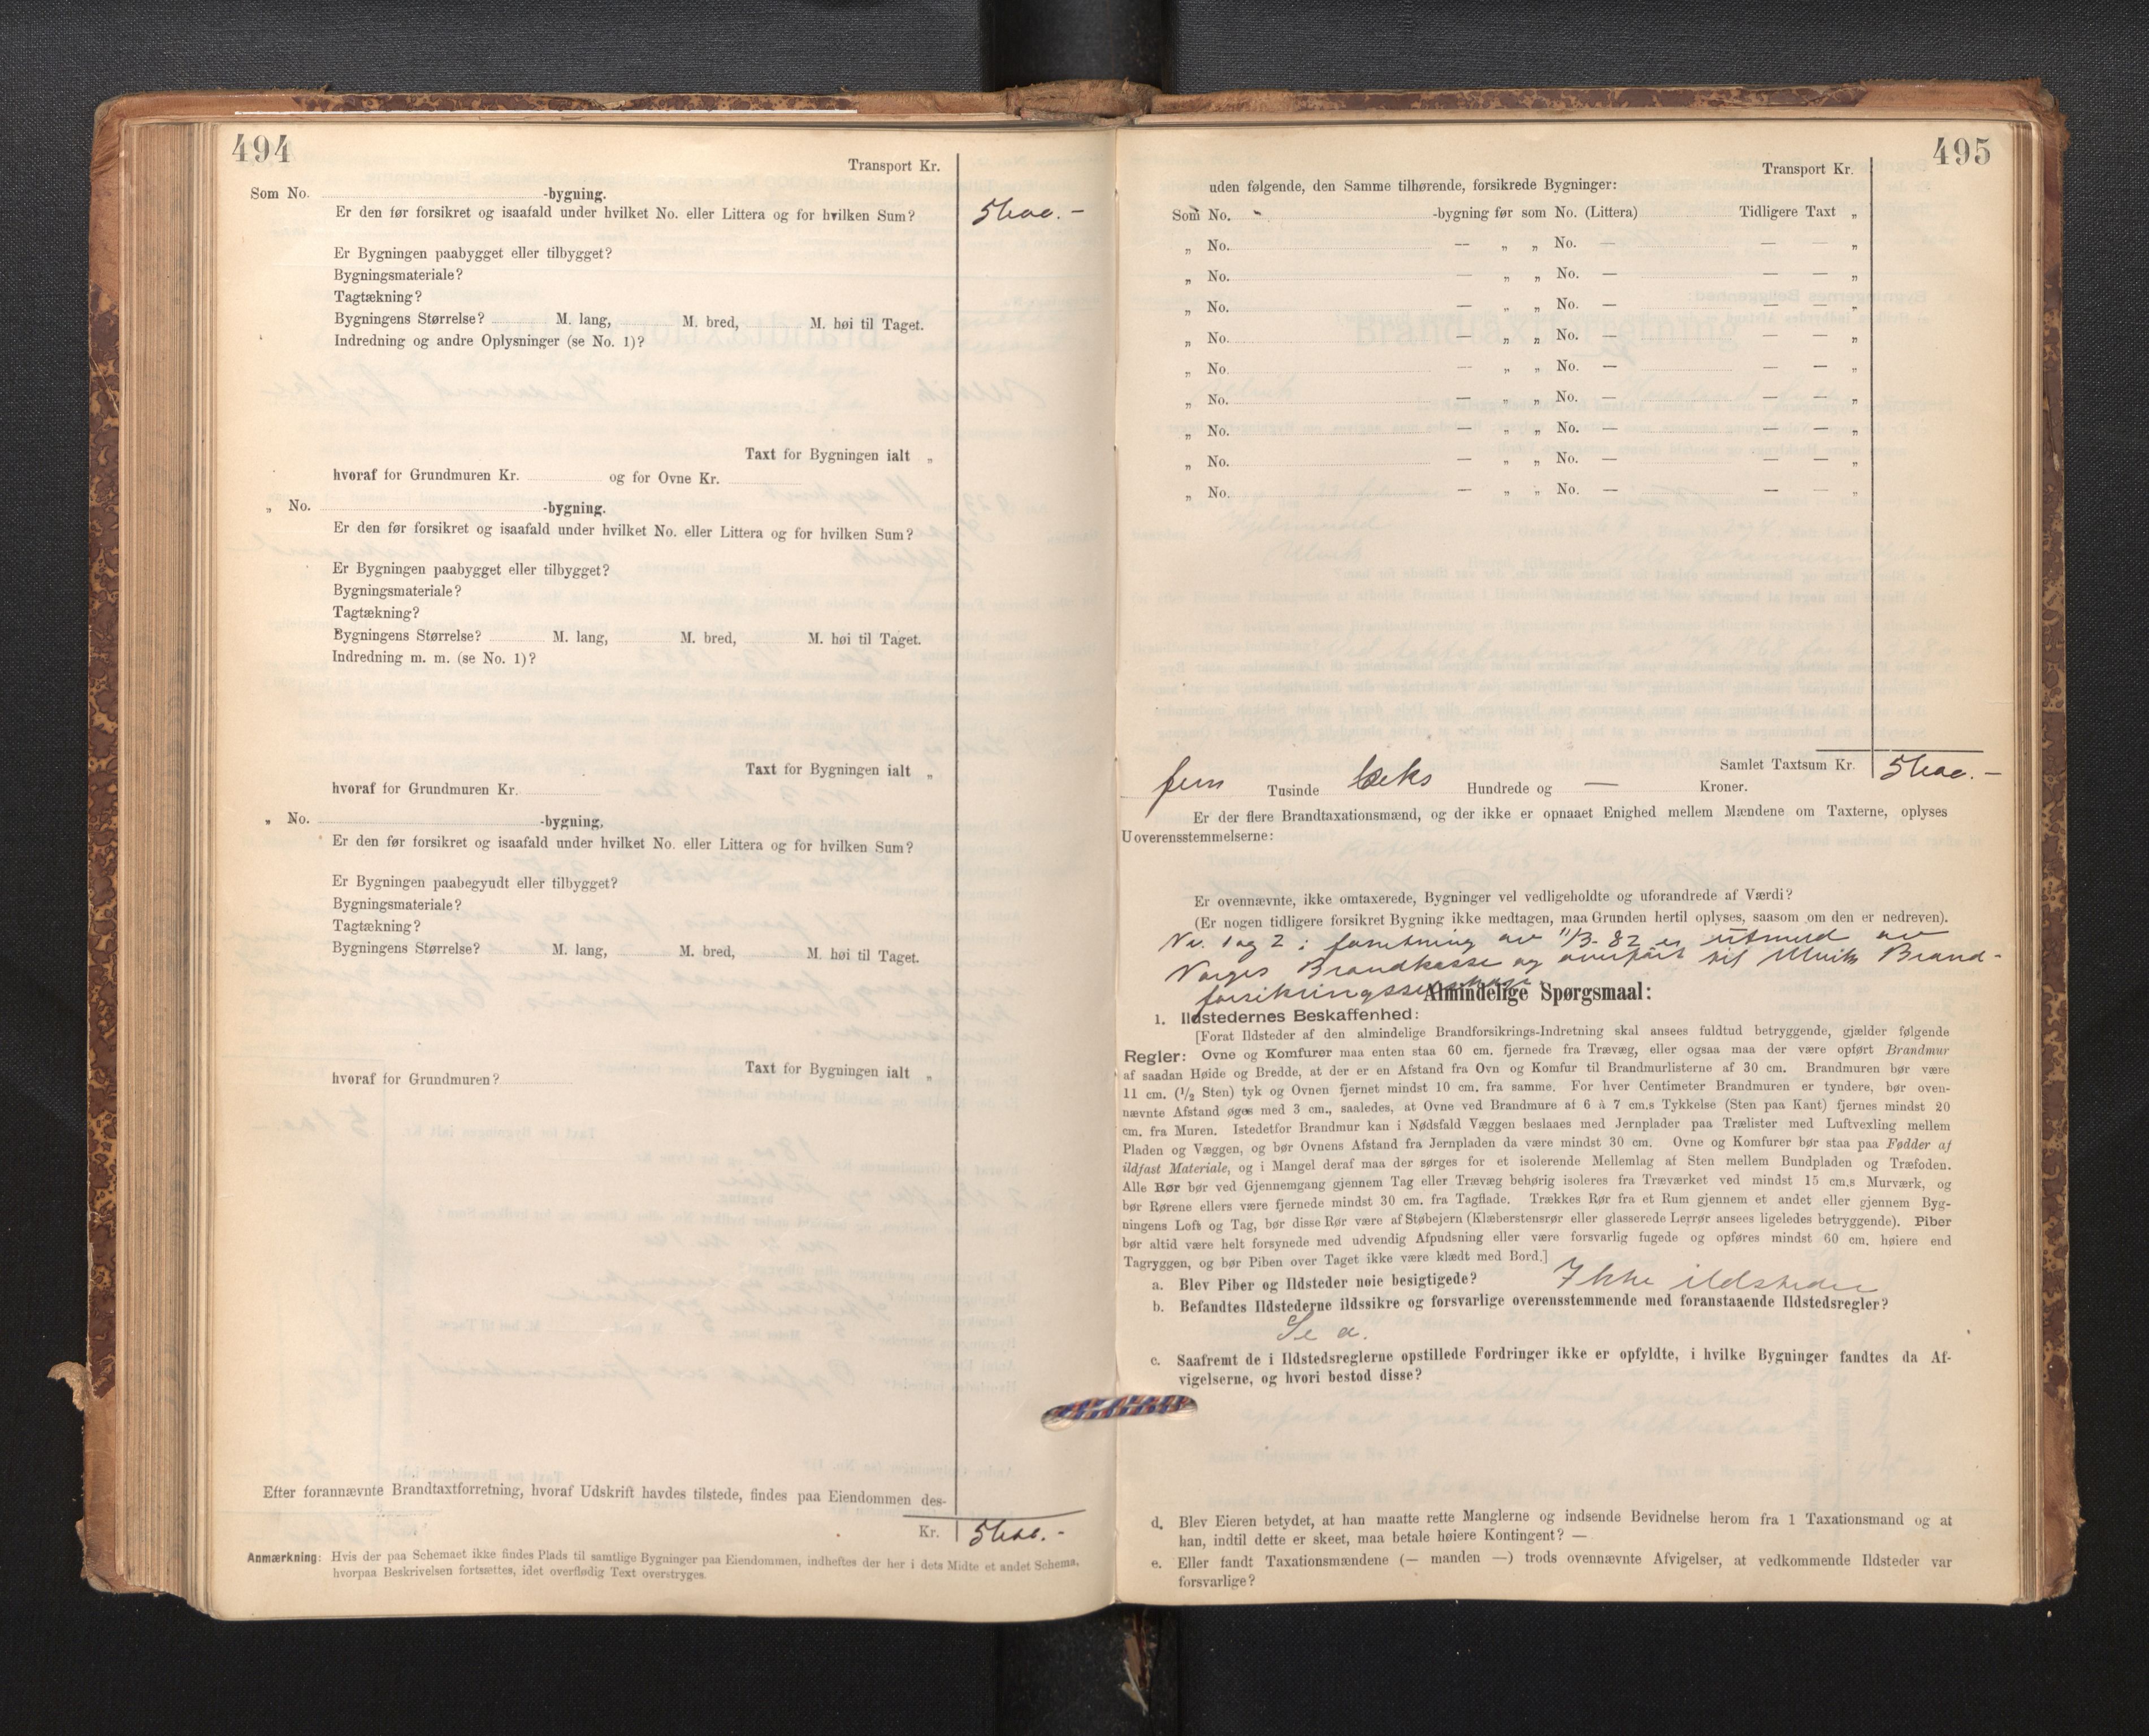 494
Transport Kr.
Som No. -bygning.
Er den før forsikret og isaafald under hvilket No. eller Littera og for hvilken Sum? 5600.-
Er Bygningen paabygget eller tilbygget?
Bygningsmateriale?
Tagtækning?
Bygningens Størrelse? M. lang, M. bred, M. høi til Taget.
Indredning og andre Oplysninger (se No. 1)?
Taxt for Bygningen ialt „
hvoraf for Grundmuren Kr. og for Ovne Kr.
„ No. -bygning.
Er den før forsikret og isaafald under hvilket No. eller Littera og for hvilken Sum?
Er Bygningen paabygget eller tilbygget?
Bygningsmateriale?
Tagtækning?
Bygningens Størrelse? M. lang, M. bred, M. høi til Taget.
Indredning m. m. (se No. 1)?
Taxt for Bygningen ialt „
hvoraf for Grundmuren Kr.
„ No. -bygning,
Er den før forsikret og isaafald under hvilket No. eller Littera og for hvilken Sum?
Er Bygningen paabegyudt eller tilbygget?
Bygningsmateriale?
Tagtækning?
Bygningens Størrelse? M. lang, M. bred, M. høi til Taget.
Taxt for Bygningen ialt „
hvoraf for Grundmuren?
Efter forannævnte Brandtaxtforretning, hvoraf Udskrift havdes tilstede, findes paa Eiendommen des-
Kr. 5600.-
Anmærkning: Hvis der paa Schemaet ikke findes Plads til samtlige Bygninger paa Eiendommen, indheftes der her i dets Midte et andet Schema,
hvorpaa Beskrivelsen fortsættes, idet overflødig Text overstryges.
495
Transport Kr.
uden følgende, den Samme tilhørende, forsikrede Bygninger:
Som No. - -bygning før som No. (Littera) Tidligere Taxt „
„ No. — „ „ No. — — — „
„ No. — „ „ No. — — — „
„ No. — „ „ No. — — — „
„ No. — „ „ No. — — — „
„ No. — „ „ No. — — — „
„ No. — „ „ No. — — — „
„ No. — „ „ No. — — — „
„ No. — „ „ No. — — — „
„ No. — „ „ No. — — — „
Samlet Taxtsum Kr. 5600.-
fem Tusinde seks Hundrede og — Kroner.
Er der flere Brandtaxationsmænd, og der ikke er opnaaet Enighed mellem Mændene om Taxterne, oplyses
Uoverensstemmelserne:
Er ovennævnte, ikke omtaxerede, Bygninger vel vedligeholdte og uforandrede af Værdi?
(Er nogen tidligere forsikret Bygning ikke medtagen, maa Grunden hertil oplyses, saasom om den er nedreven).
No. 1 og 2 i forretning av 11/3-82 er utmeld av
Norges Brandkasse og overført til Ulvik Brand-
forsikringsselskap.
Almindelige Spørgsmaal:
1. Ildstedernes Beskaffenhed:
[Forat Ildsteder af den almindelige Brandforsikrings-Indretning skal ansees fuldtud betryggende, gjælder følgende
Regler: Ovne og Komfurer maa enten staa 60 cm. fjernede fra Trævæg, eller ogsaa maa der være opført Brandmur
af saadan Høide og Bredde, at der er en Afstand fra Ovn og Komfur til Brandmurlisterne af 30 cm. Brandmuren bør være
11 cm. (1/2 Sten) tyk og Ovnen fjernet mindst 10 cm. fra samme. For hver Centimeter Brandmuren er tyndere, bør oven-
nævnte Afstand øges med 3 cm., saaledes, at Ovne ved Brandmure af 6 à 7 cm.s Tykkelse (Sten paa Kant) fjernes mindst 20
cm. fra Muren. Istedetfor Brandmur kan i Nødsfald Væggen beslaaes med Jernplader paa Trælister med Luftvexling mellem
Pladen og Væggen, og bør Ovnens Afstand fra Jernpladen da være mindst 30 cm. Ovne og Komfurer bør staa paa Fødder af
ildfast Materiale, og i Mangel deraf maa der sørges for et isolerende Mellemlag af Sten mellem Bundpladen og Træfoden.
Alle Rør bør ved Gjennemgang gjennem Tag eller Trævæg behørig isoleres fra Træværket ved mindst 15 cm.s Murværk, og
bør Rørene ellers være fjernede mindst 30 cm. fra Tagflade. Trækkes Rør fra et Rum gjennem et andet eller gjennem Byg-
ningens Loft og Tag, bør disse Rør være af Støbejern (Klæberstensrør eller glasserede Lerrør ansees ligeledes betryggende). Piber
bør altid være helt forsynede med udvendig Afpudsning eller være forsvarlig fugede og opføres mindst 60 cm. høiere end
Tagryggen, og bør Piben over Taget ikke være klædt med Bord.]
a. Blev Piber og Ildsteder nøie besigtigede? Ikke ildsteder
b. Befandtes Ildstederne ildssikre og forsvarlige overensstemmende med foranstaaende Ildstedsregler?
Se a.
c. Saafremt de i Ildstedsreglerne opstillede Fordringer ikke er opfyldte, i hvilke Bygninger fandtes da Af-
vigelserne, og hvori bestod disse?
d. Blev Eieren betydet, at han maatte rette Manglerne og indsende Bevidnelse herom fra 1 Taxationsmand og at
han, indtil dette er skeet, maa betale høiere Kontingent? —
e. Eller fandt Taxationsmændene (— manden —) trods ovennævnte Afvigelser, at vedkommende Ildsteder var
forsvarlige?